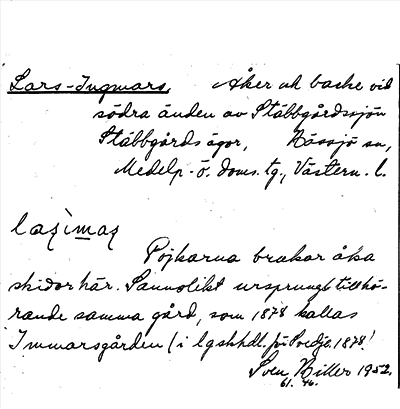 Lars-Ingmars, Åker och backe vid
södra änden av Stäbbgårdssjön
Stäbbgårds ägor, Hässjö sn,
Medelp. ö. doms. tg., Västern. l.
Pojkarna brukar åka
skidor här. Sannolikt ursprungl. tillhö-
rande samma gård, som 1878 kallas
Immarsgården (i lgshhdl. för Svedje 1878)
Sven Hiller 1952.
61. 46.